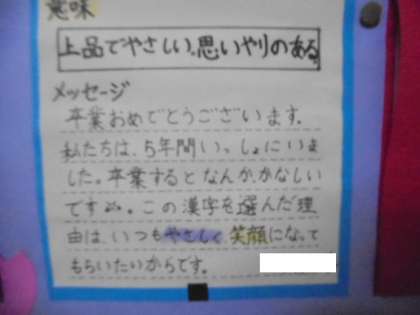 意味
上品でやさしい。思いやりのある
メッセージ
卒業おめでとうございます。
私たちは、5年間いっしょにいま
した。卒業するとなんかかなしい
です。この漢字を選んだ理
由は、いつもやさしく、笑顔になって
もらいたいからです。